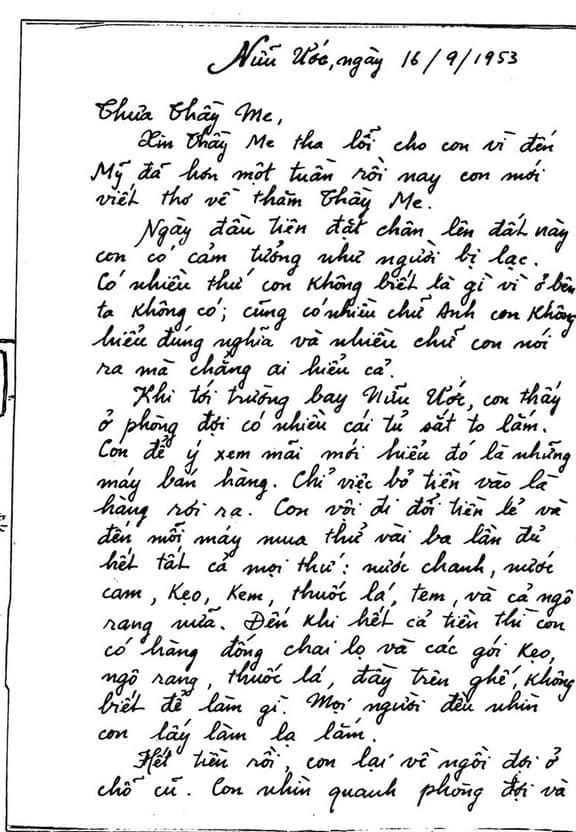 Nữu Ước, ngày 16/9/1953
Thưa Thầy Me,
Xin Thầy Me tha lỗi cho con vì đến
Mỹ đã hơn một tuần rồi nay con mới
viết thơ về thăm Thầy Me.
Ngày đầu tiên đặt chân lên đất này
con có cảm tưởng như người bị lạc.
Có nhiều thứ con không biết là gì vì ở bên
ta không có; cũng có nhiều chữ Anh con không
hiểu đúng nghĩa và nhiều chữ con nói
ra mà chẳng ai hiểu cả.
Khi tới trường bay Nữu Ước, con thấy
ở phòng đợi có nhiều cái tủ sắt to lắm.
Con để ý xem mãi mới hiểu đó là những
máy bán hàng. Chỉ việc bỏ tiền vào là
hàng rơi ra. Con vội đi đổi tiền lẻ và
đến mỗi máy mua thử vài ba lần đủ
hết tất cả mọi thứ: nước chanh, nước
cam, kẹo, kem, thuốc lá, tem, và cả ngô
rang nữa. Đến khi hết cả tiền thì con
có hàng đống chai lọ và các gói kẹo,
ngô rang, thuốc lá, đầy trên ghế, không
biết để làm gì. Mọi người đều nhìn
con lấy làm lạ lắm.
Hết tiền rồi, con lại về ngồi đợi ở
chỗ cũ. Con nhìn quanh phòng đợi và